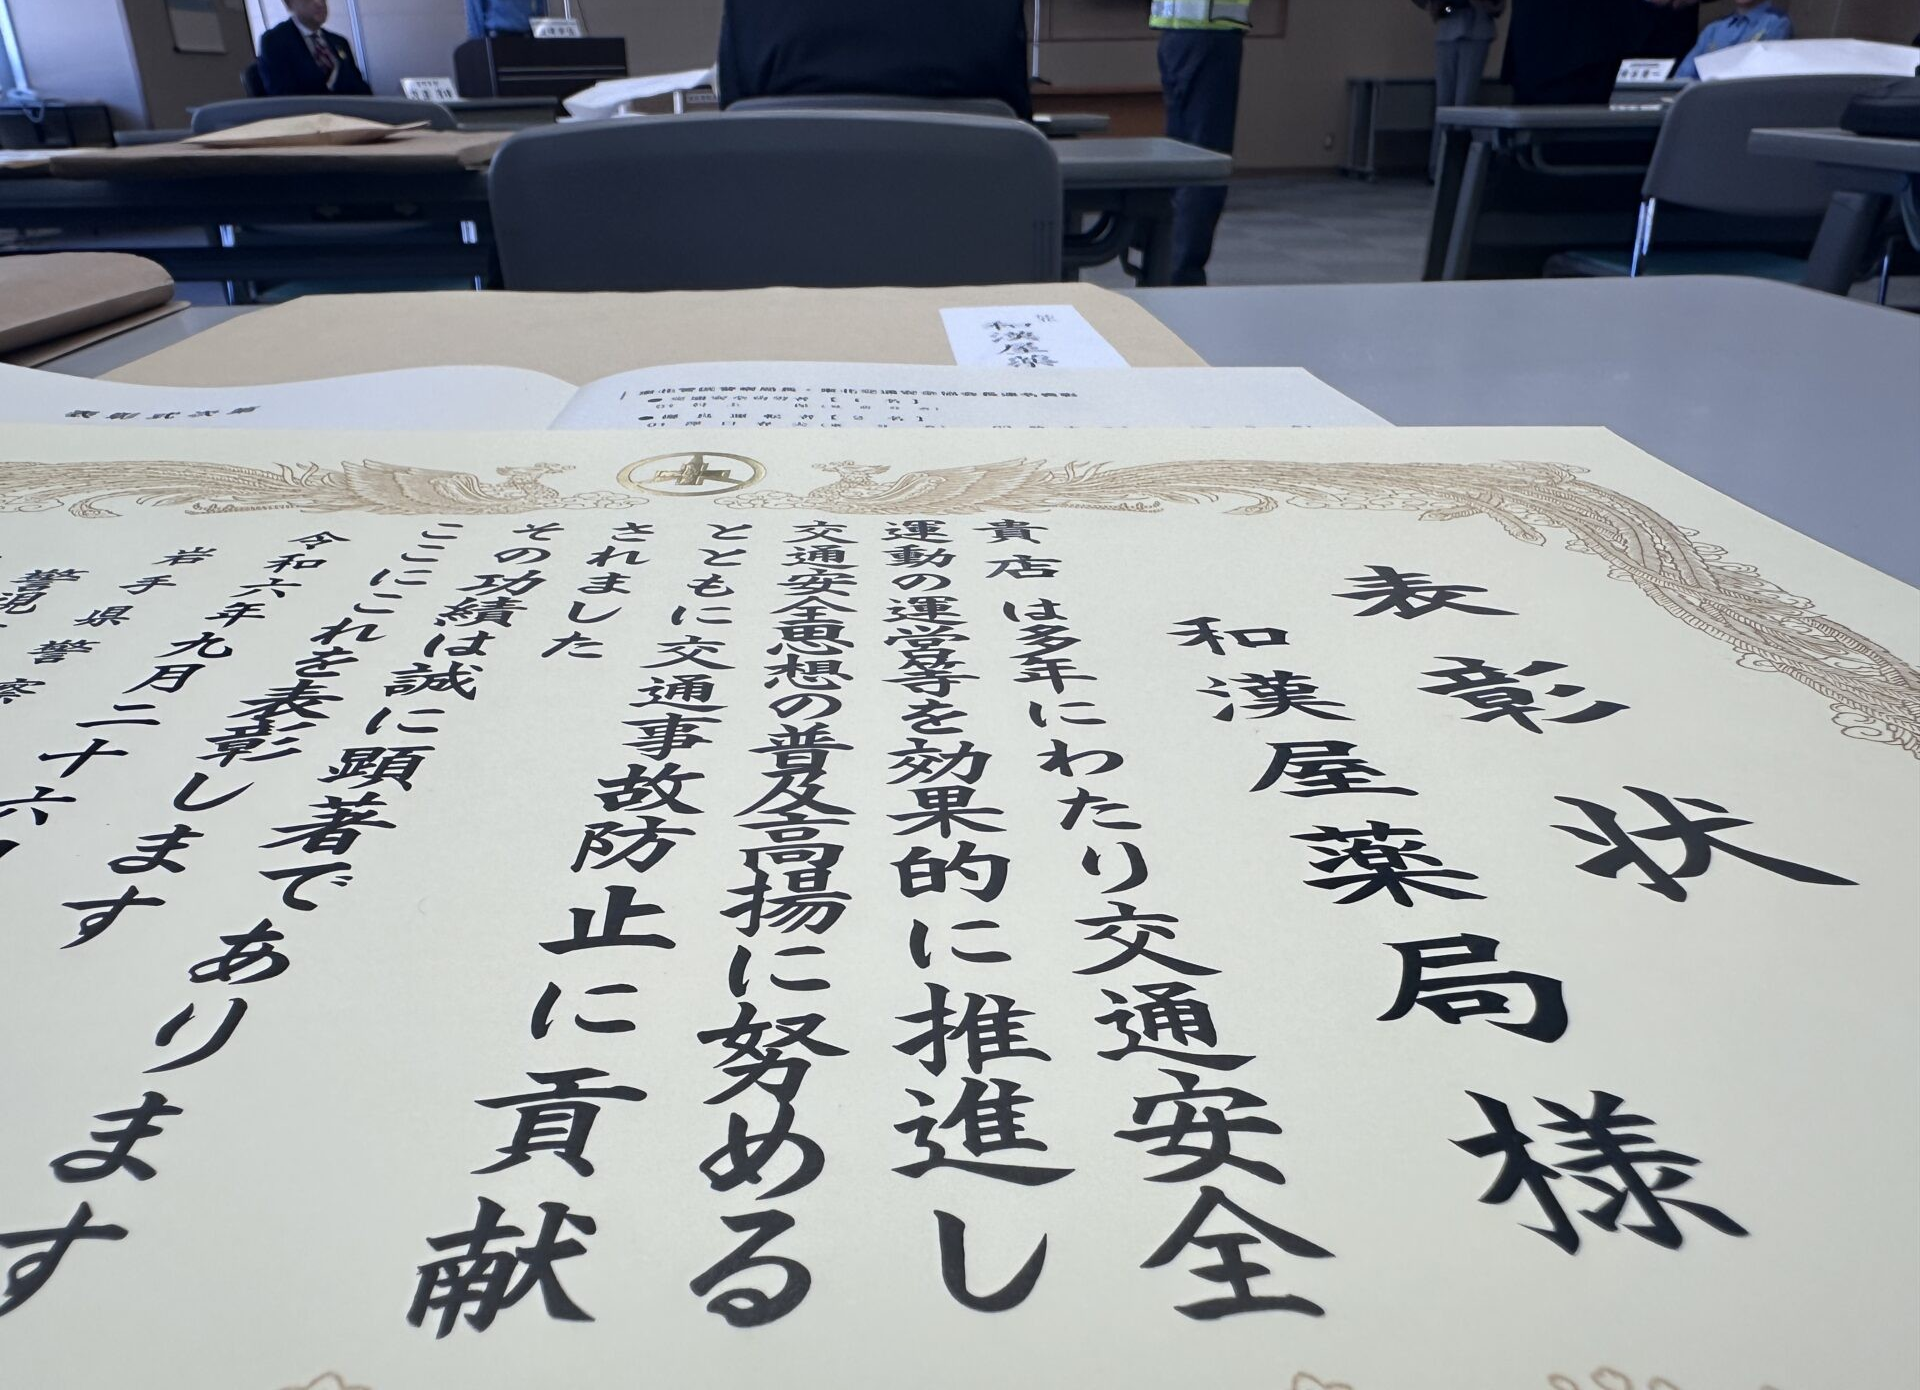 表彰状
和漢屋薬局様
貴店は多年にわたり交通安全
運動の運営等を効果的に推進し
交通安全思想の普及高揚に努める
とともに交通事故防止に貢献
されました
その功績は誠に顕著であります
ここにこれを表彰します
令和六年九月二十六
岩手県警察
警視
和漢屋薬
表彰式次第